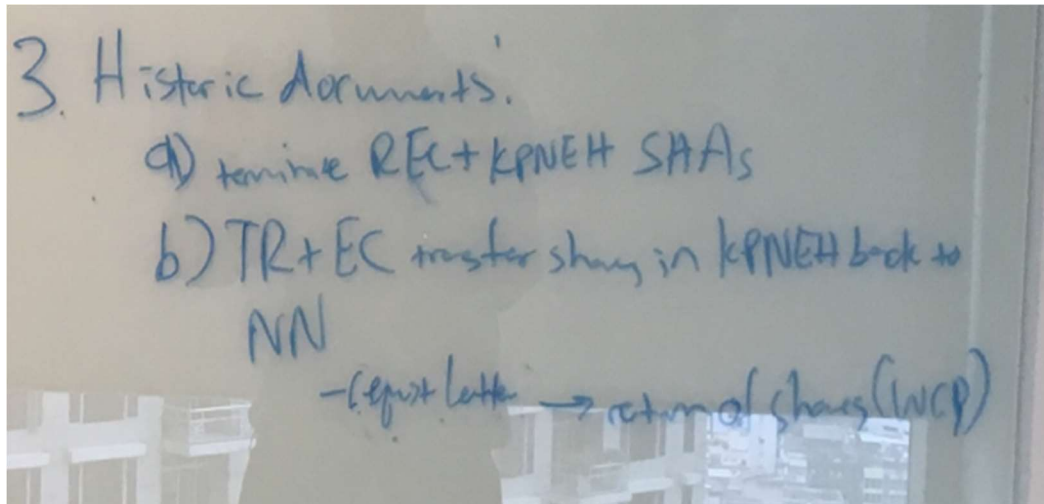 3. Historic documents'.
a) terminate REC + KPNEH SHAs
b) TR + EC transfer shares in KPNEH back to
NN
- request letter → return of shares (WCP)